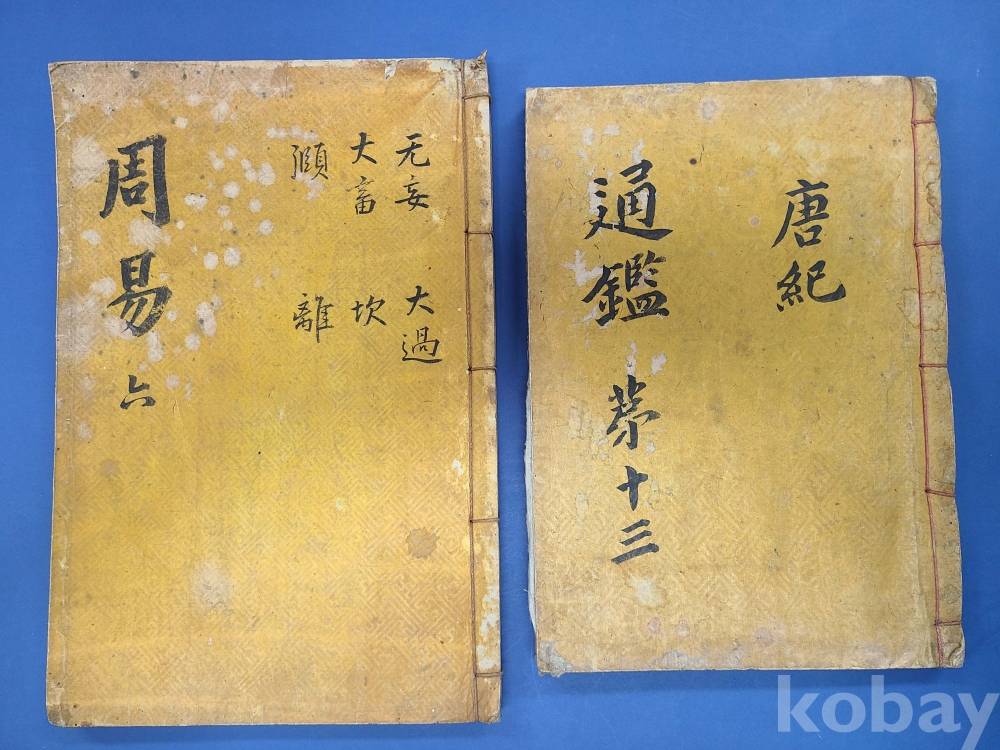 周易六
无妄 大過
大畜 坎
頤 離
通鑑 苐十三
唐紀
kobay